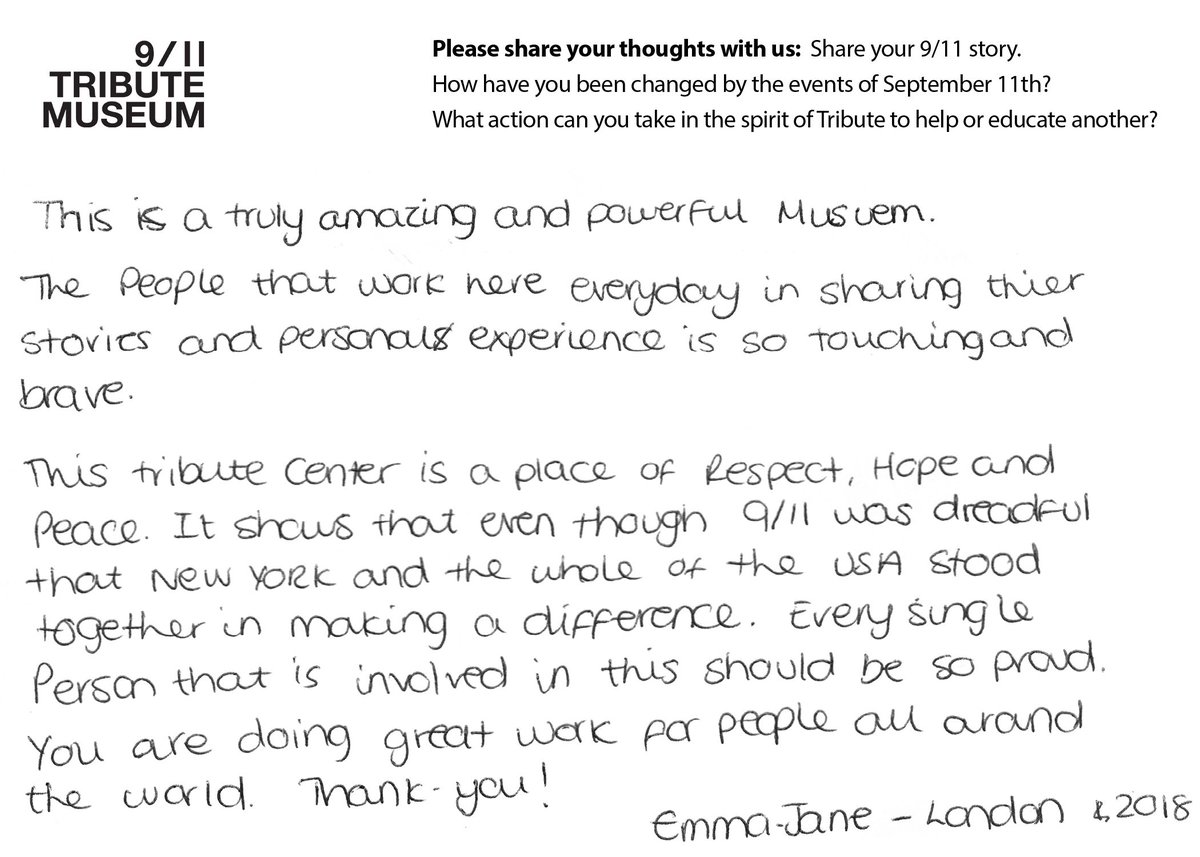 9/11
TRIBUTE
MUSEUM
Please share your thoughts with us: Share your 9/11 story.
How have you been changed by the events of September 11th?
What action can you take in the spirit of Tribute to help or educate another?
This is a truly amazing and powerful Musuem.
The People that work here everyday in sharing thier
stories and personals experience is so touching and
brave.
This tribute Center is a place of Respect, Hope and
Peace. It shows that even though 9/11 was dreadful
that NEW YORK and the whole of the USA stood
together in making a difference. Every single
Person that is involved in this should be so proud.
You are doing great work for people all around
the world. Thank-you!
Emma-Jane - London 2018